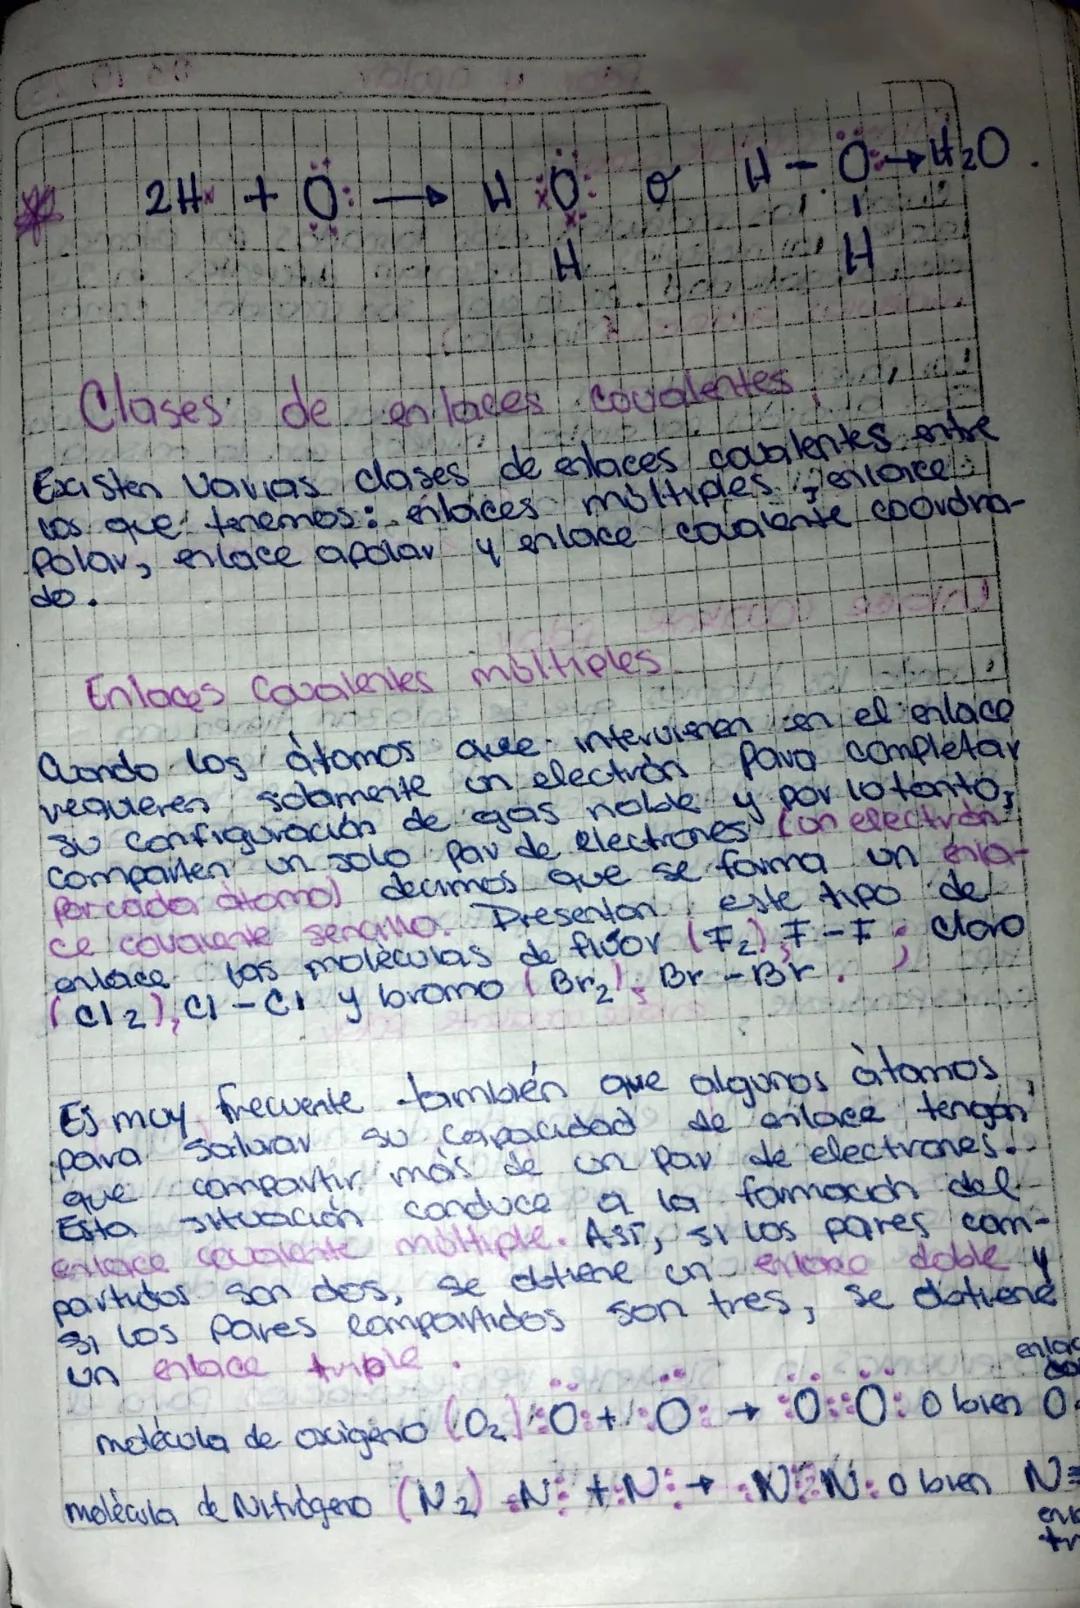 2H× + Ö: → H ×Ö: o H - Ö: → H₂O.
H H
Clases de enlaces covalentes
Existen varias clases de enlaces covalentes entre
los que tenemos: enlaces múltiples, enlace
polar, enlace apolar y enlace covalente coordina-
do.
Enlaces Covalentes múltiples
Cuando los átomos que intervienen en el enlace
requieren solamente un electrón para completar
su configuración de gas noble y por lo tanto,
comparten un solo par de electrones (un electrón
por cada átomo) decimos que se forma un enla-
ce covalente sencillo. Presentan este tipo de
enlace las moléculas de flúor (F₂), F-F; cloro
(Cl₂), Cl-Cl y bromo (Br₂), Br-Br.
Es muy frecuente también que algunos átomos,
para saturar su capacidad de enlace tengan
que compartir más de un par de electrones.
Esta situación conduce a la formación del
enlace covalente múltiple. Así, si los pares com-
partidos son dos, se obtiene un enlace doble y
si los pares compartidos son tres, se obtiene
un enlace triple.
molécula de oxígeno (O₂) :Ö: + :Ö: → :Ö::Ö: o bien O
molécula de Nitrógeno (N₂) :N: + :N: → :N⋮⋮N: o bien N≡